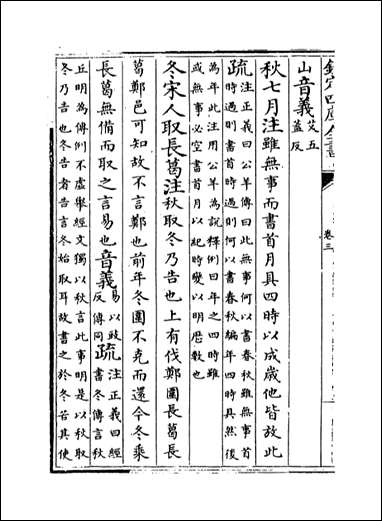 欽定四庫全書
卷三
山音義艾五
蓋反
秋七月注雖無事而書首月具四時以成歲他皆放此
疏注正義曰公羊傳曰此無事何以書春秋雖無事首
時過則書首時過則何以書春秋編年四時具然後
為年此注用公羊為說釋例曰年之四時雖
或無事必空書首月以紀時變以明歴數也
冬宋人取長葛注秋取冬乃告也上有伐鄭圍長葛長
葛鄭邑可知故不言鄭也前年冬圍不克而還今冬乘
長葛無備而取之言易也音義易以豉
反傳同疏注正義曰經
書冬傳言秋
丘明為傳例不虛舉經文獨以秋言此事明是以秋取
冬乃告也冬告者告言冬始取耳故書之於冬若其使